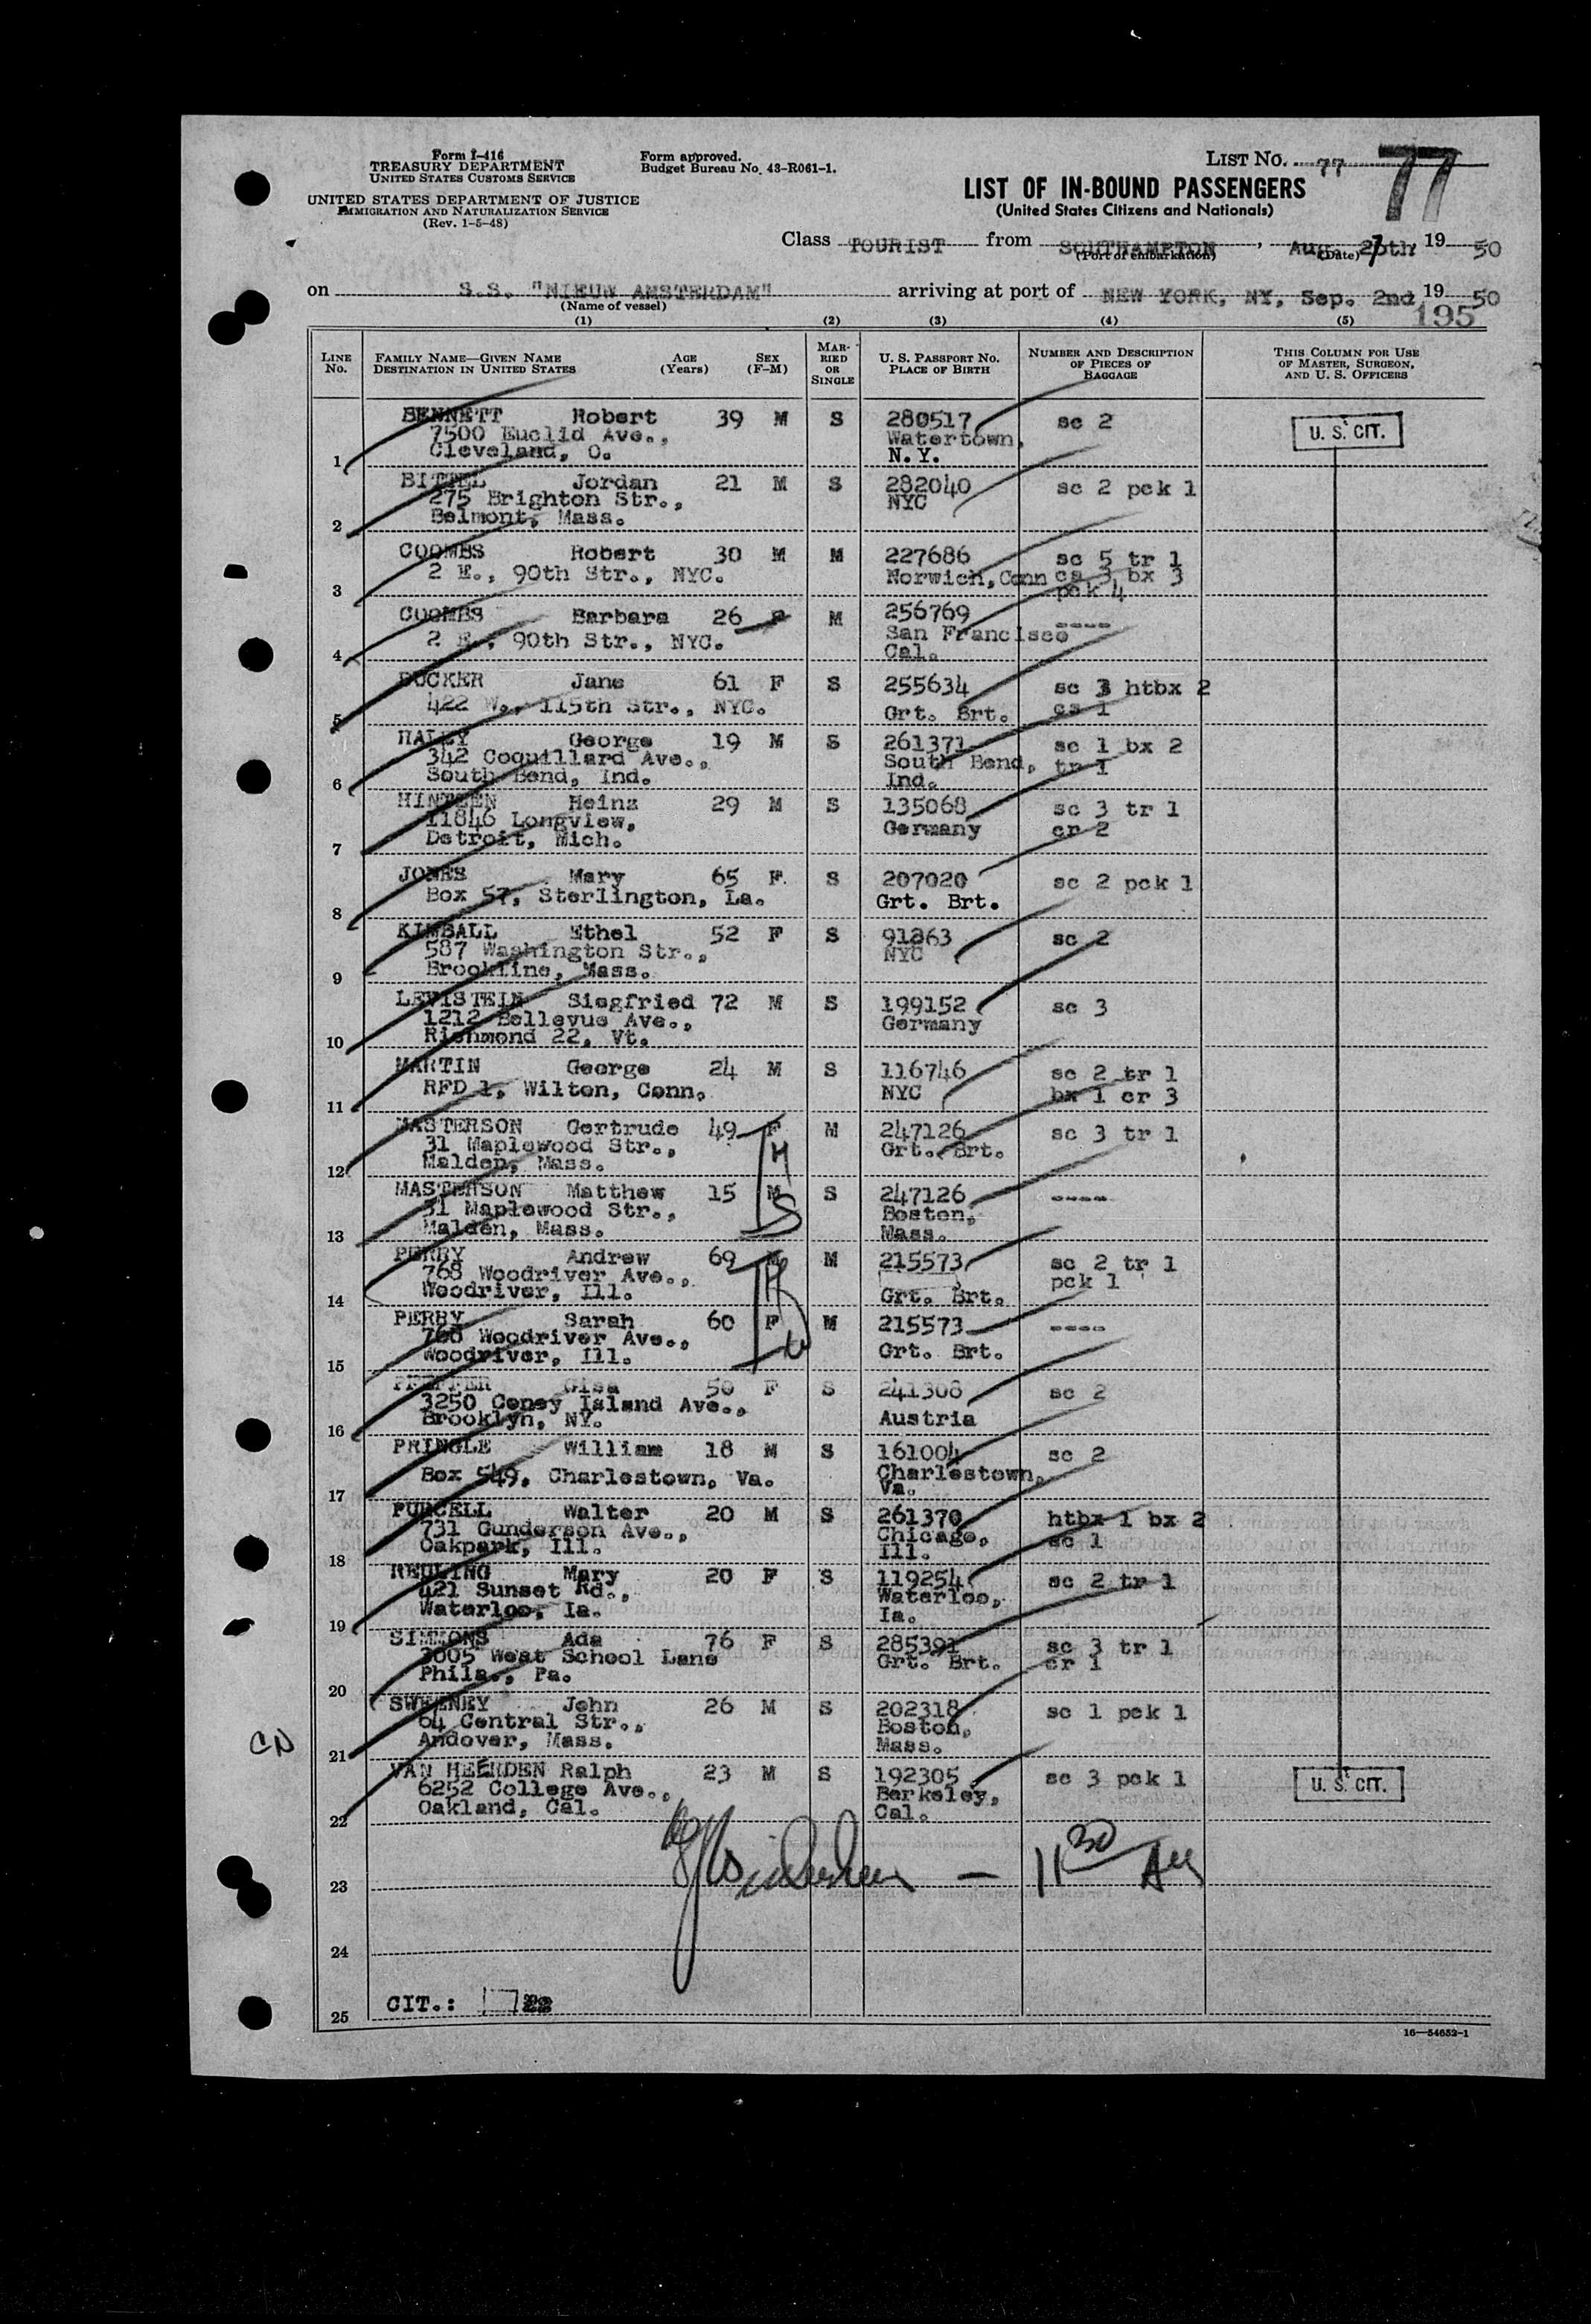 Form I-416
TREASURY DEPARTMENT
UNITED STATES CUSTOMS SERVICE
UNITED STATES DEPARTMENT OF JUSTICE
IMMIGRATION AND NATURALIZATION SERVICE
(Rev. 1-5-48)
Form approved.
Budget Bureau No. 43-R061-1.
LIST NO. 77 77
LIST OF IN-BOUND PASSENGERS
(United States Citizens and Nationals)
Class TOURIST from SOUTHAMPTON, Aug. 27th, 19 50
(Port of embarkation) (Date)
on S.S. "NIEUW AMSTERDAM" arriving at port of NEW YORK, NY, Sep. 2nd 19 50
(Name of vessel)
195
(1) (2) (3) (4) (5)
LINE No. FAMILY NAME—GIVEN NAME DESTINATION IN UNITED STATES AGE (Years) SEX (F-M) MARRIED OR SINGLE U. S. PASSPORT NO. PLACE OF BIRTH NUMBER AND DESCRIPTION OF PIECES OF BAGGAGE THIS COLUMN FOR USE OF MASTER, SURGEON, AND U. S. OFFICERS
BENNETT Robert 39 M S 280517 sc 2 U. S. CIT.
7500 Euclid Ave., Watertown,
1 Cleveland, O. N.Y.
BITTEL Jordan 21 M S 282040 sc 2 pck 1
275 Brighton Str., NYC
2 Belmont, Mass.
COOMBS Robert 30 M M 227686 sc 5 tr 1
2 E., 90th Str., NYC. Norwich, Conn cs 3 bx 3
3 pck 4
COOMBS Barbara 26 F M 256769 ----
2 E., 90th Str., NYC. San Francisco
4 Cal.
DUCKER Jane 61 F S 255634 sc 3 htbx 2
422 W., 115th Str., NYC. Grt. Brt. cs 1
5
HALEY George 19 M S 261371 sc 1 bx 2
342 Coquillard Ave., South Bend, tr 1
6 South Bend, Ind. Ind.
HINTZEN Heinz 29 M S 135068 sc 3 tr 1
11846 Longview, Germany cr 2
7 Detroit, Mich.
JONES Mary 65 F. S 207020 sc 2 pck 1
Box 57, Sterlington, La. Grt. Brt.
8
KIMBALL Ethel 52 F S 91863 sc 2
587 Washington Str., NYC
9 Brookline, Mass.
LEVISTEIN Siegfried 72 M S 199152 sc 3
1212 Bellevue Ave., Germany
10 Richmond 22, Vt.
MARTIN George 24 M S 116746 sc 2 tr 1
RFD 1, Wilton, Conn. NYC bx 1 cr 3
11
MASTERSON Gertrude 49 F M 247126 sc 3 tr 1
31 Maplewood Str., Grt. Brt.
12 Malden, Mass.
MASTERSON Matthew 15 M S 247126 ----
31 Maplewood Str., Boston,
13 Malden, Mass. Mass.
PERRY Andrew 69 M M 215573 sc 2 tr 1
768 Woodriver Ave., pck 1
14 Woodriver, Ill. Grt. Brt.
PERRY Sarah 60 F M 215573 ----
768 Woodriver Ave., Grt. Brt.
15 Woodriver, Ill.
PFEFFER Gisa 50 F S 241308 sc 2
3250 Coney Island Ave., Austria
16 Brooklyn, NY.
PRINGLE William 18 M S 161004 sc 2
Box 549, Charlestown, Va. Charlestown,
17 Va.
PURCELL Walter 20 M S 261370 htbx 1 bx 2
731 Gunderson Ave., Chicago, sc 1
18 Oakpark, Ill. Ill.
REULING Mary 20 F S 119254 sc 2 tr 1
421 Sunset Rd., Waterloo,
19 Waterloo, Ia. Ia.
SIMMONS Ada 76 F S 285391 sc 3 tr 1
3005 West School Lane Grt. Brt. cr 1
20 Phila., Pa.
SWEENEY John 26 M S 202318 sc 1 pck 1
64 Central Str., Boston,
21 Andover, Mass. Mass.
VAN HEERDEN Ralph 23 M S 192305 sc 3 pck 1 U. S. CIT.
6252 College Ave., Berkeley,
22 Oakland, Cal. Cal.
23 — 11 30 AM
24
25 CIT.: 22
16—54652-1